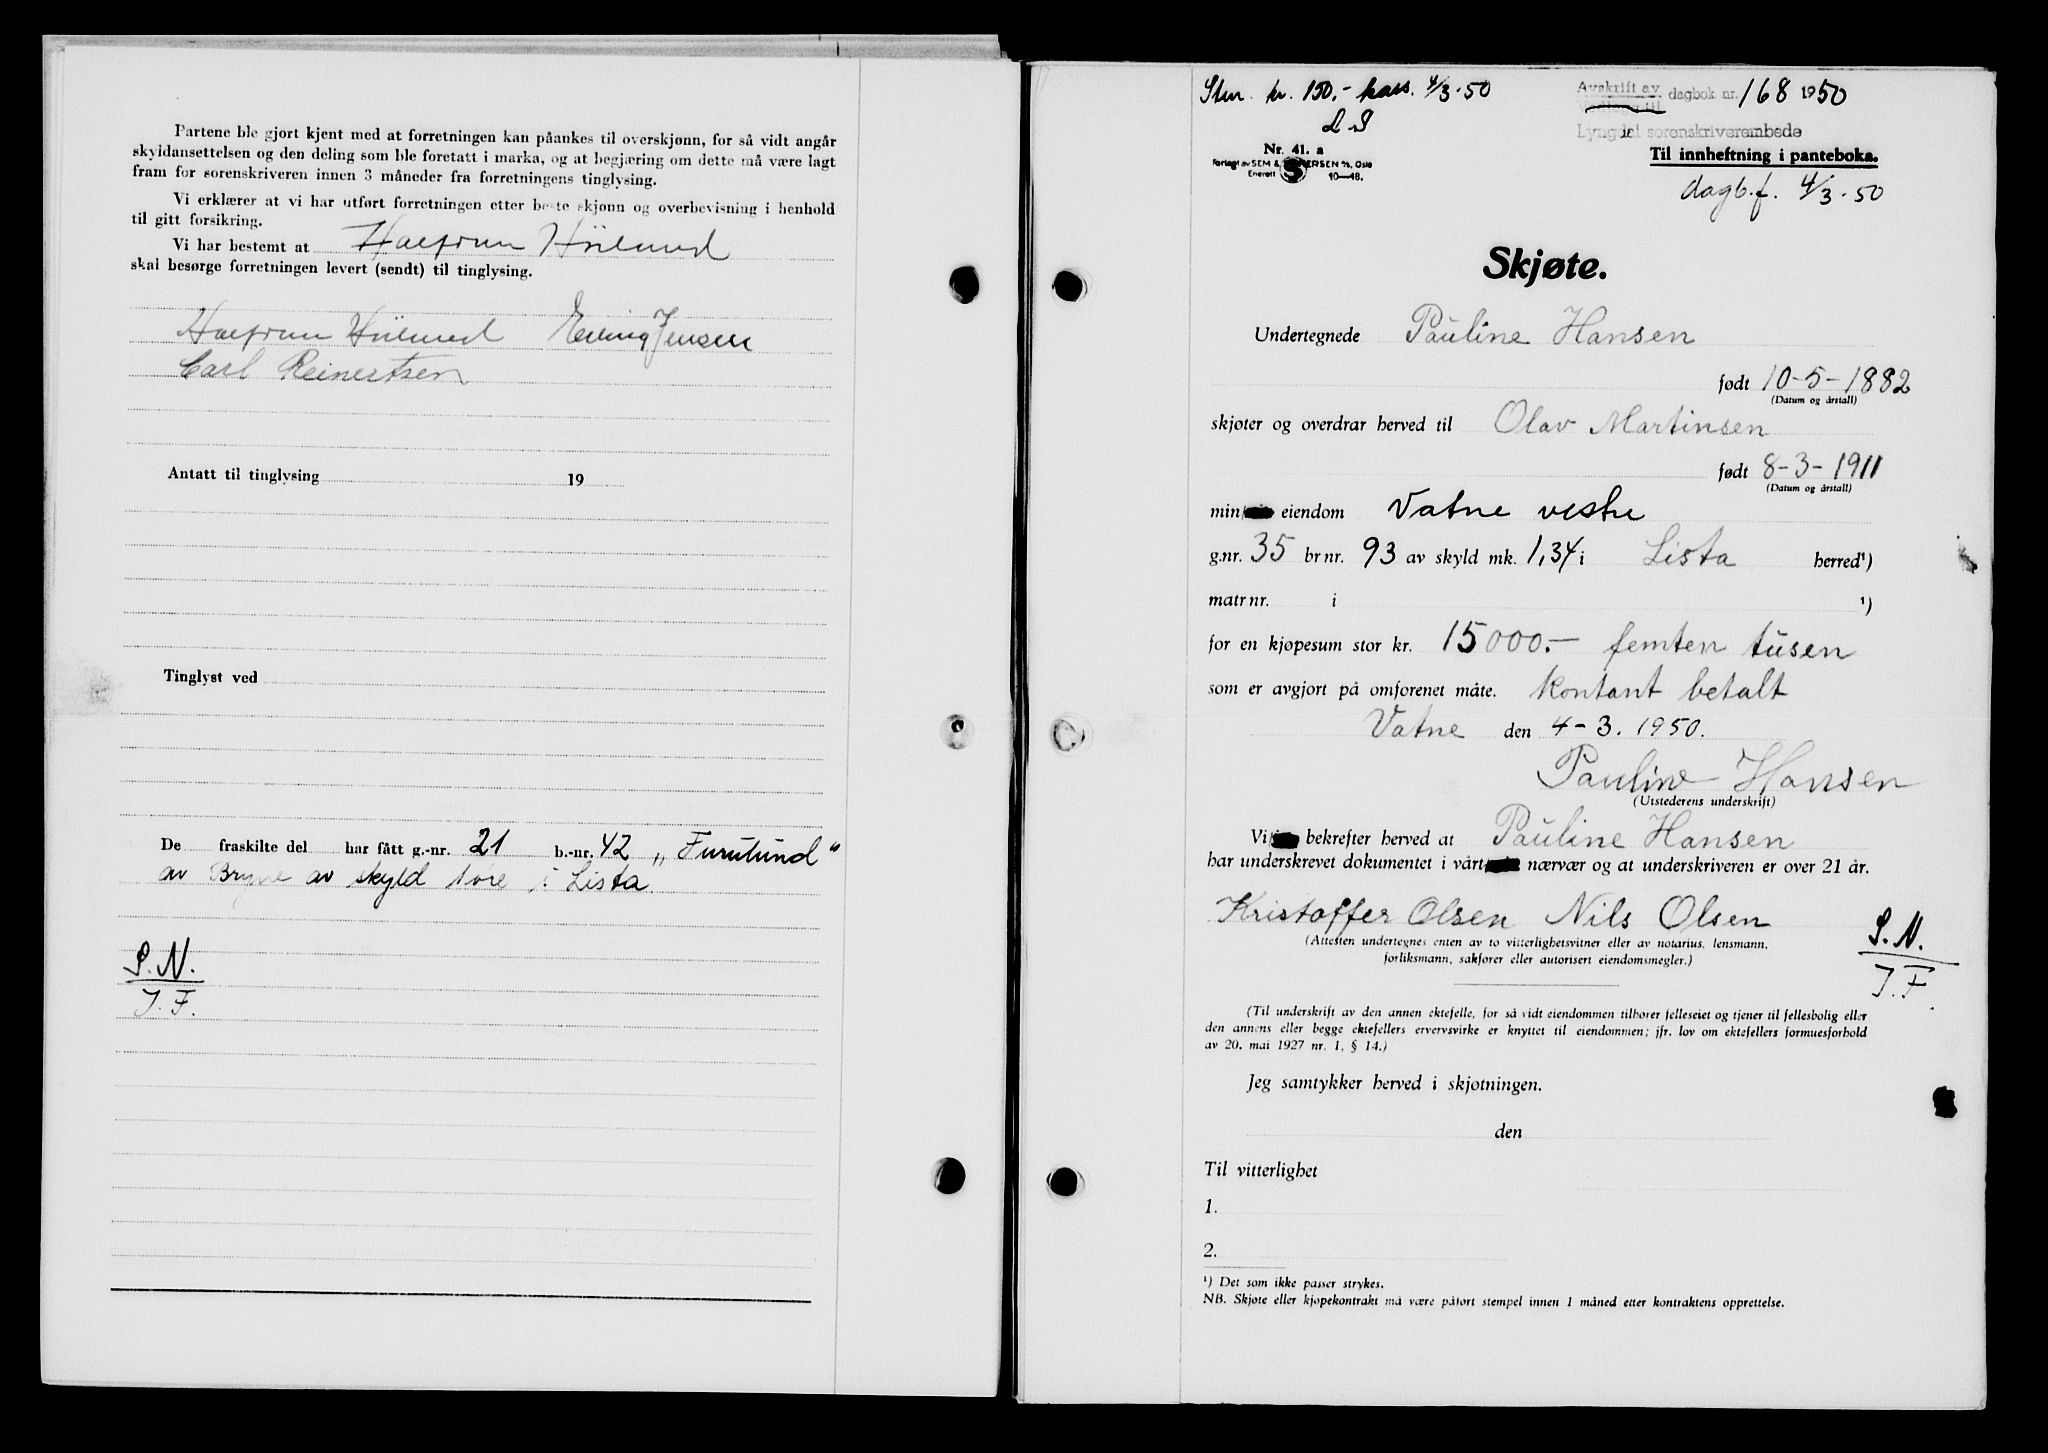 Partene ble gjort kjent med at forretningen kan påankes til overskjønn, for så vidt angår
skyldansettelsen og den deling som ble foretatt i marka, og at begjæring om dette må være lagt
fram for sorenskriveren innen 3 måneder fra forretningens tinglysing.
Vi erklærer at vi har utført forretningen etter beste skjønn og overbevisning i henhold
til gitt forsikring.
Vi har bestemt at
skal besørge forretningen levert (sendt) til tinglysing.
Jensen
Carl Reinertsen
Antatt til tinglysing 19
Tinglyst ved
De fraskilte del har fått g.-nr. 21 b.-nr. 42 „Furulund“
av Bryne av skyld 1 øre i Lista
S. N.
J. F.
Stm. kr. 150.- kass. 4/3-50
Avskrift av
dagbok nr. 168 1950
Lyngdal sorenskriverembede
Nr. 41. a
Til innheftning i panteboka.
Enerett 10—48.
dagb.f. 4/3-50
Skjøte.
Undertegnede Pauline Hansen
født 10-5-1882
(Datum og årstall)
skjøter og overdrar herved til Olav Martinsen
født 8-3-1911
(Datum og årstall)
min eiendom Vatne vestre
g.nr. 35 br nr. 93 av skyld mk. 1,34 i Lista herred¹)
matr nr. i ¹)
for en kjøpesum stor kr. 15000.- femten tusen
som er avgjort på omforenet måte. Kontant betalt
Vatne den 4-3. 1950.
Pauline Hansen
(Utstederens underskrift)
Vi bekrefter herved at Pauline Hansen
har underskrevet dokumentet i vårt nærvær og at underskriveren er over 21 år.
Kristoffer Olsen Nils Olsen
(Attesten undertegnes enten av to vitterlighetsvitner eller av notarius, lensmann,
forliksmann, sakfører eller autorisert eiendomsmegler.)
S. N.
J. F.
(Til underskrift av den annen ektefelle, for så vidt eiendommen tilhører felleseiet og tjener til fellesbolig eller
den annens eller begge ektefellers ervervsvirke er knyttet til eiendommen; jfr. lov om ektefellers formuesforhold
av 20. mai 1927 nr. 1, § 14.)
Jeg samtykker herved i skjøtningen.
den
Til vitterlighet
1.
2.
¹) Det som ikke passer strykes.
NB. Skjøte eller kjøpekontrakt må være påført stempel innen 1 måned etter kontraktens opprettelse.